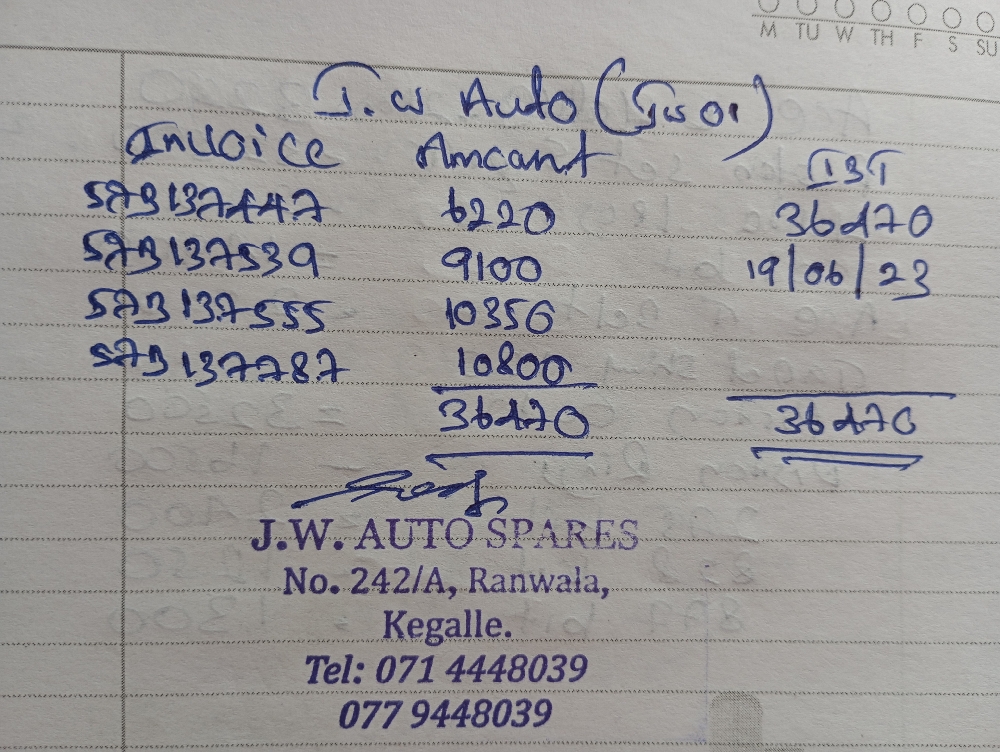 M TU W TH F S SU
J.W Auto (JW01)
Invoice Amount IBT
573137447 6220 36470
573137539 9100 19/06/23
573137555 10350
573137787 10800
36470 36470
J.W. AUTO SPARES
No. 242/A, Ranwala,
Kegalle.
Tel: 071 4448039
077 9448039